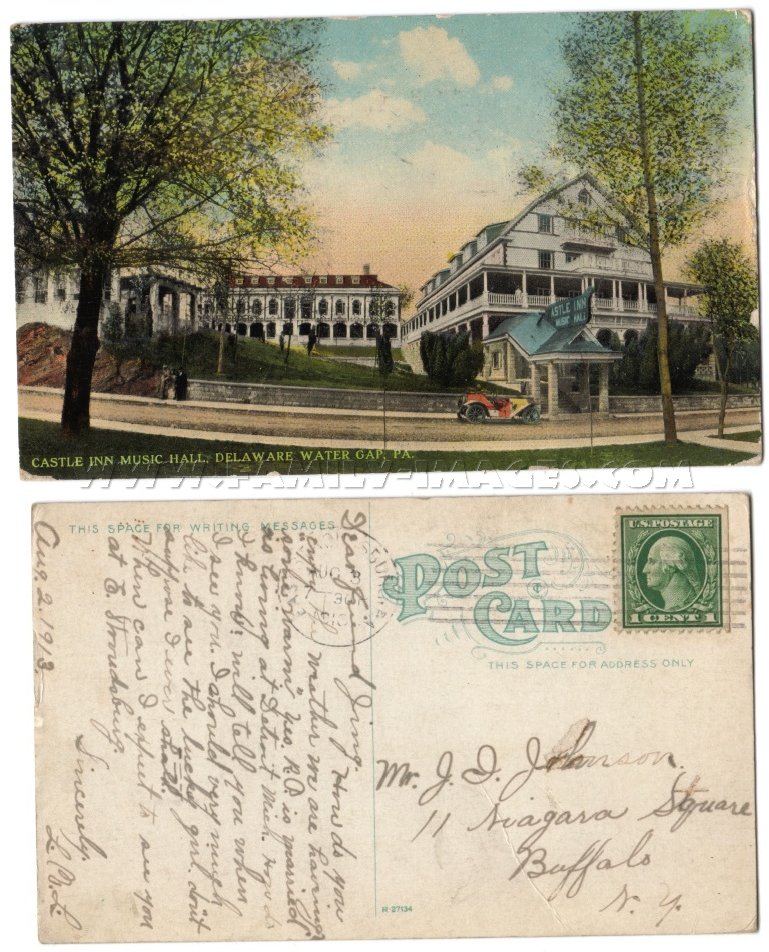 ASTLE INN
MUSIC HALL
CASTLE INN MUSIC HALL, DELAWARE WATER GAP, PA.
WWW.FAMILY-IMAGES.COM
THIS SPACE FOR WRITING MESSAGES
Aug. 2, 1913.
Dear friend Jing. How do you
like the weather we are having
some warm. Yes, R.D. is married
is living at Detroit Mich.
I know: will tell you when
I see you. I should very much
like to see the lucky girl. don't
suppose I ever shall.
When can I expect to see you
at E. Stroudsburg.
Sincerely.
L. B. L.
POST
CARD
THIS SPACE FOR ADDRESS ONLY
U.S. POSTAGE
1 CENT 1
Mr. J. D. Johnson.
11 Niagara Square
Buffalo
N. Y.
R-27134